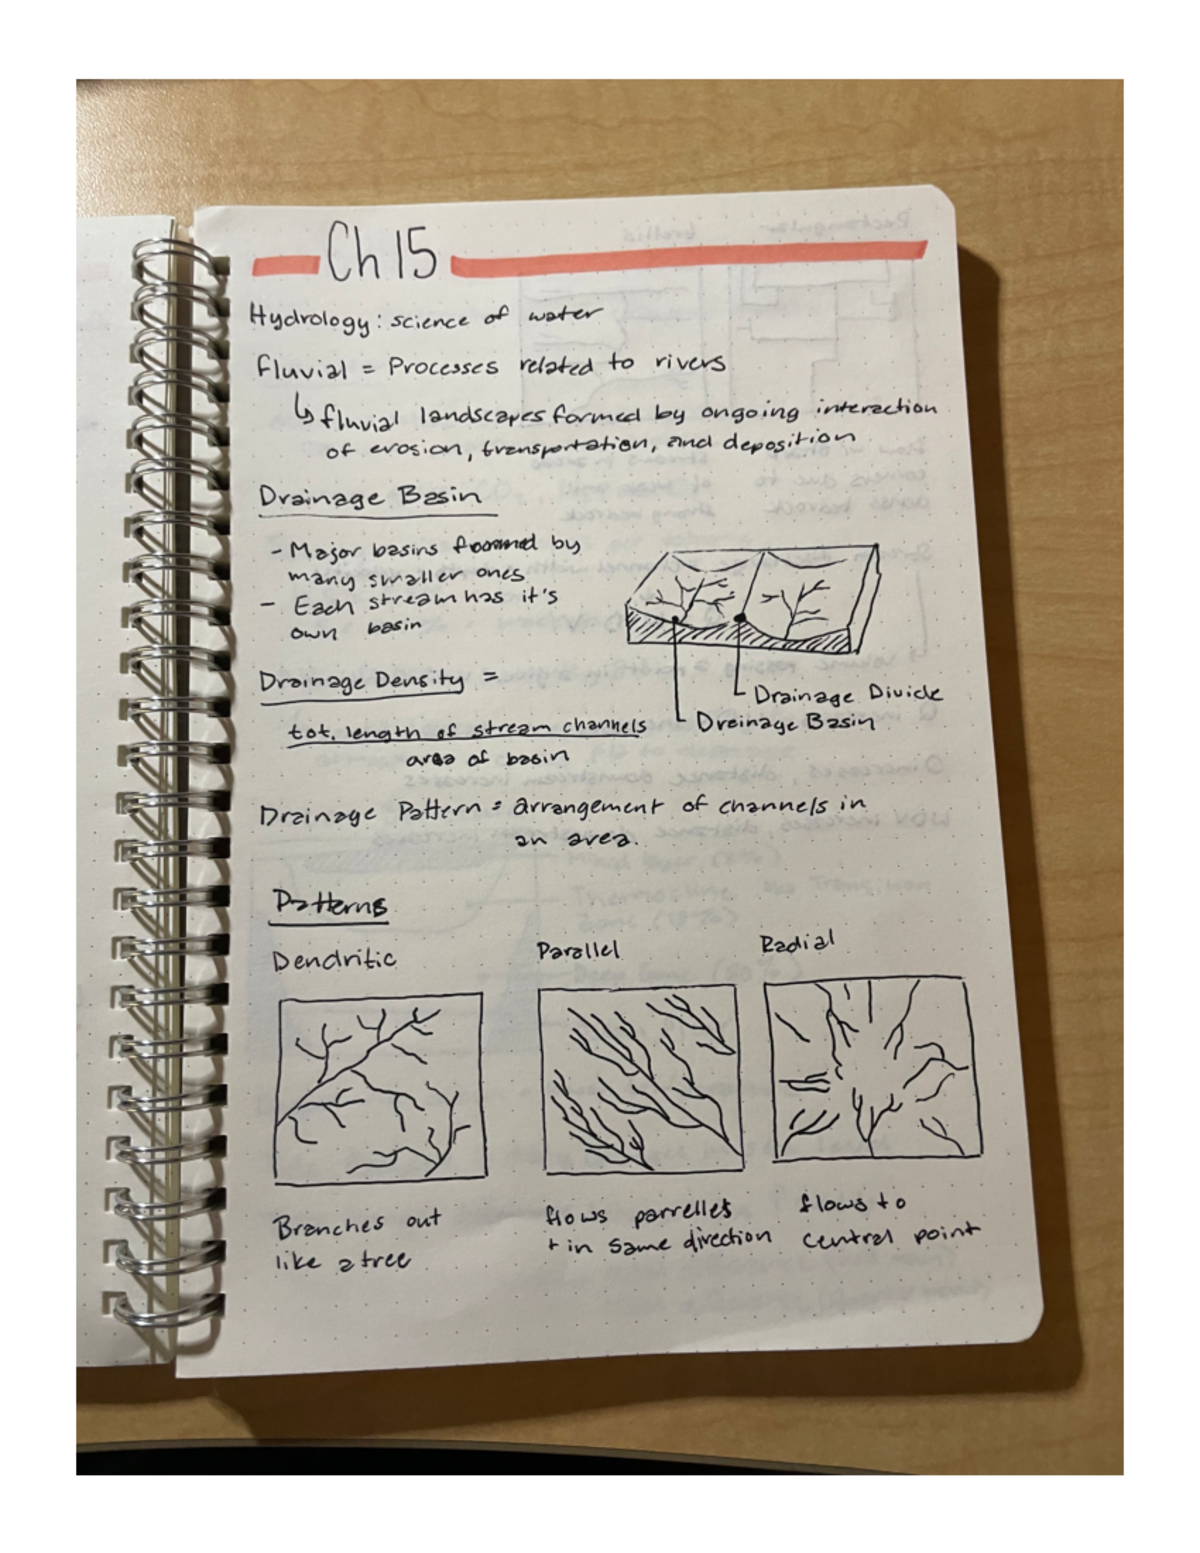 Ch 15
Hydrology: science of water
fluvial = Processes related to rivers
↳ fluvial landscapes formed by ongoing interaction
of erosion, transportation, and deposition
Drainage Basin
- Major basins formed by
many smaller ones
- Each stream has it's
own basin
Drainage Divide
Drainage Basin
Drainage Density =
tot. length of stream channels
area of basin
Drainage Pattern = arrangement of channels in
an area.
Patterns
Dendritic
Parallel
Radial
Branches out
like a tree
flows parrelles
+ in same direction
flows to
central point